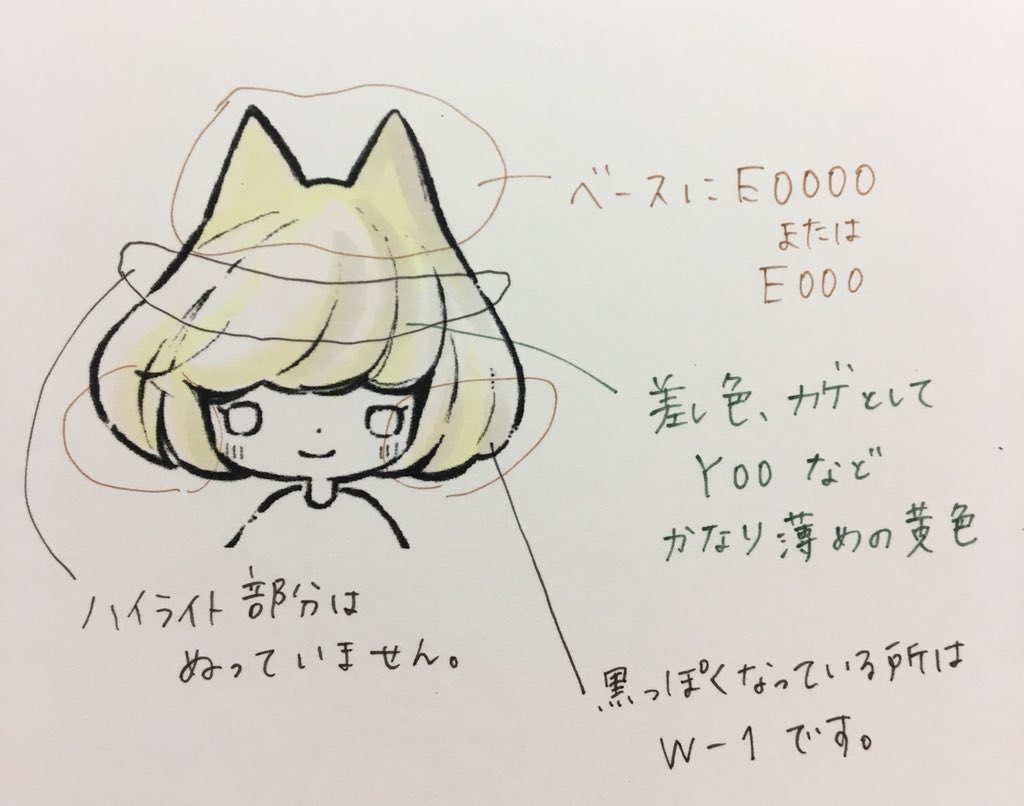 ベースにE0000
または
E000
差し色、カゲとして
Y00 など
かなり薄めの黄色
ハイライト部分は
ぬっていません。
黒っぽくなっている所は
W-1です。